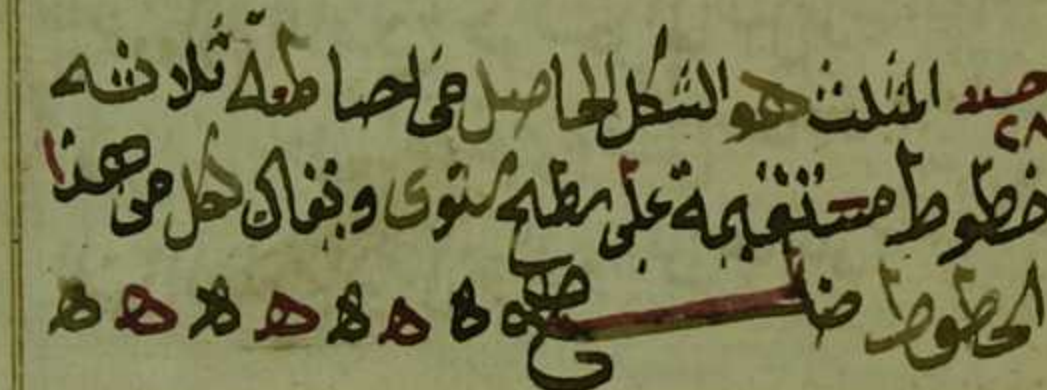 حد ٢٨ المثلث هو الشكل الحاصل من احاطة ثلاثه
خطوط مستقيمة على سطح مستوى ويقال لكل من هذا
الخطوط ضلع ه ه ه ه ه ه ه ه